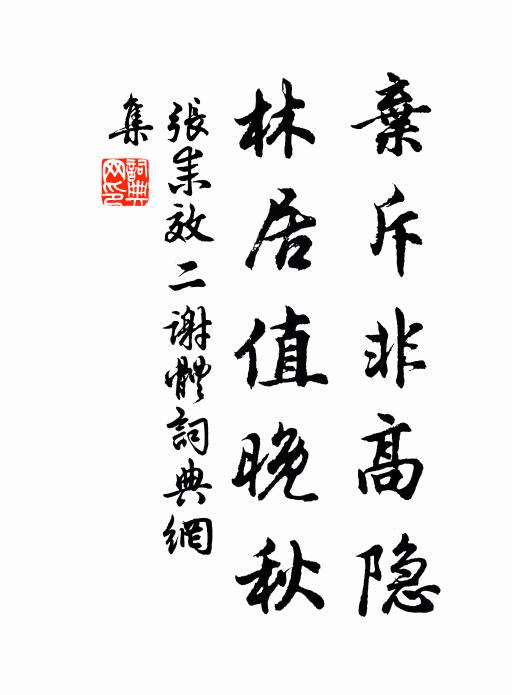 棄斥非高隐
林居值晚秋
張耒效二謝體詞典網
集
詞典
网印